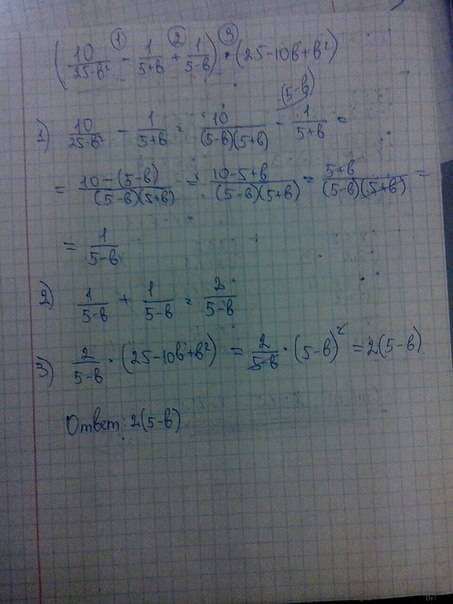 ① ② ③
(10/(25-в²) - 1/(5+в) + 1/(5-в)) · (25-10в+в²)
(5-в)
1) 10/(25-в²) - 1/(5+в) = 10/((5-в)(5+в)) - 1/(5+в) =
= (10-(5-в))/((5-в)(5+в)) = (10-5+в)/((5-в)(5+в)) = (5+в)/((5-в)(5+в)) =
= 1/(5-в)
2) 1/(5-в) + 1/(5-в) = 2/(5-в)
3) 2/(5-в) · (25-10в+в²) = 2/(5-в) · (5-в)² = 2(5-в)
Ответ: 2(5-в)